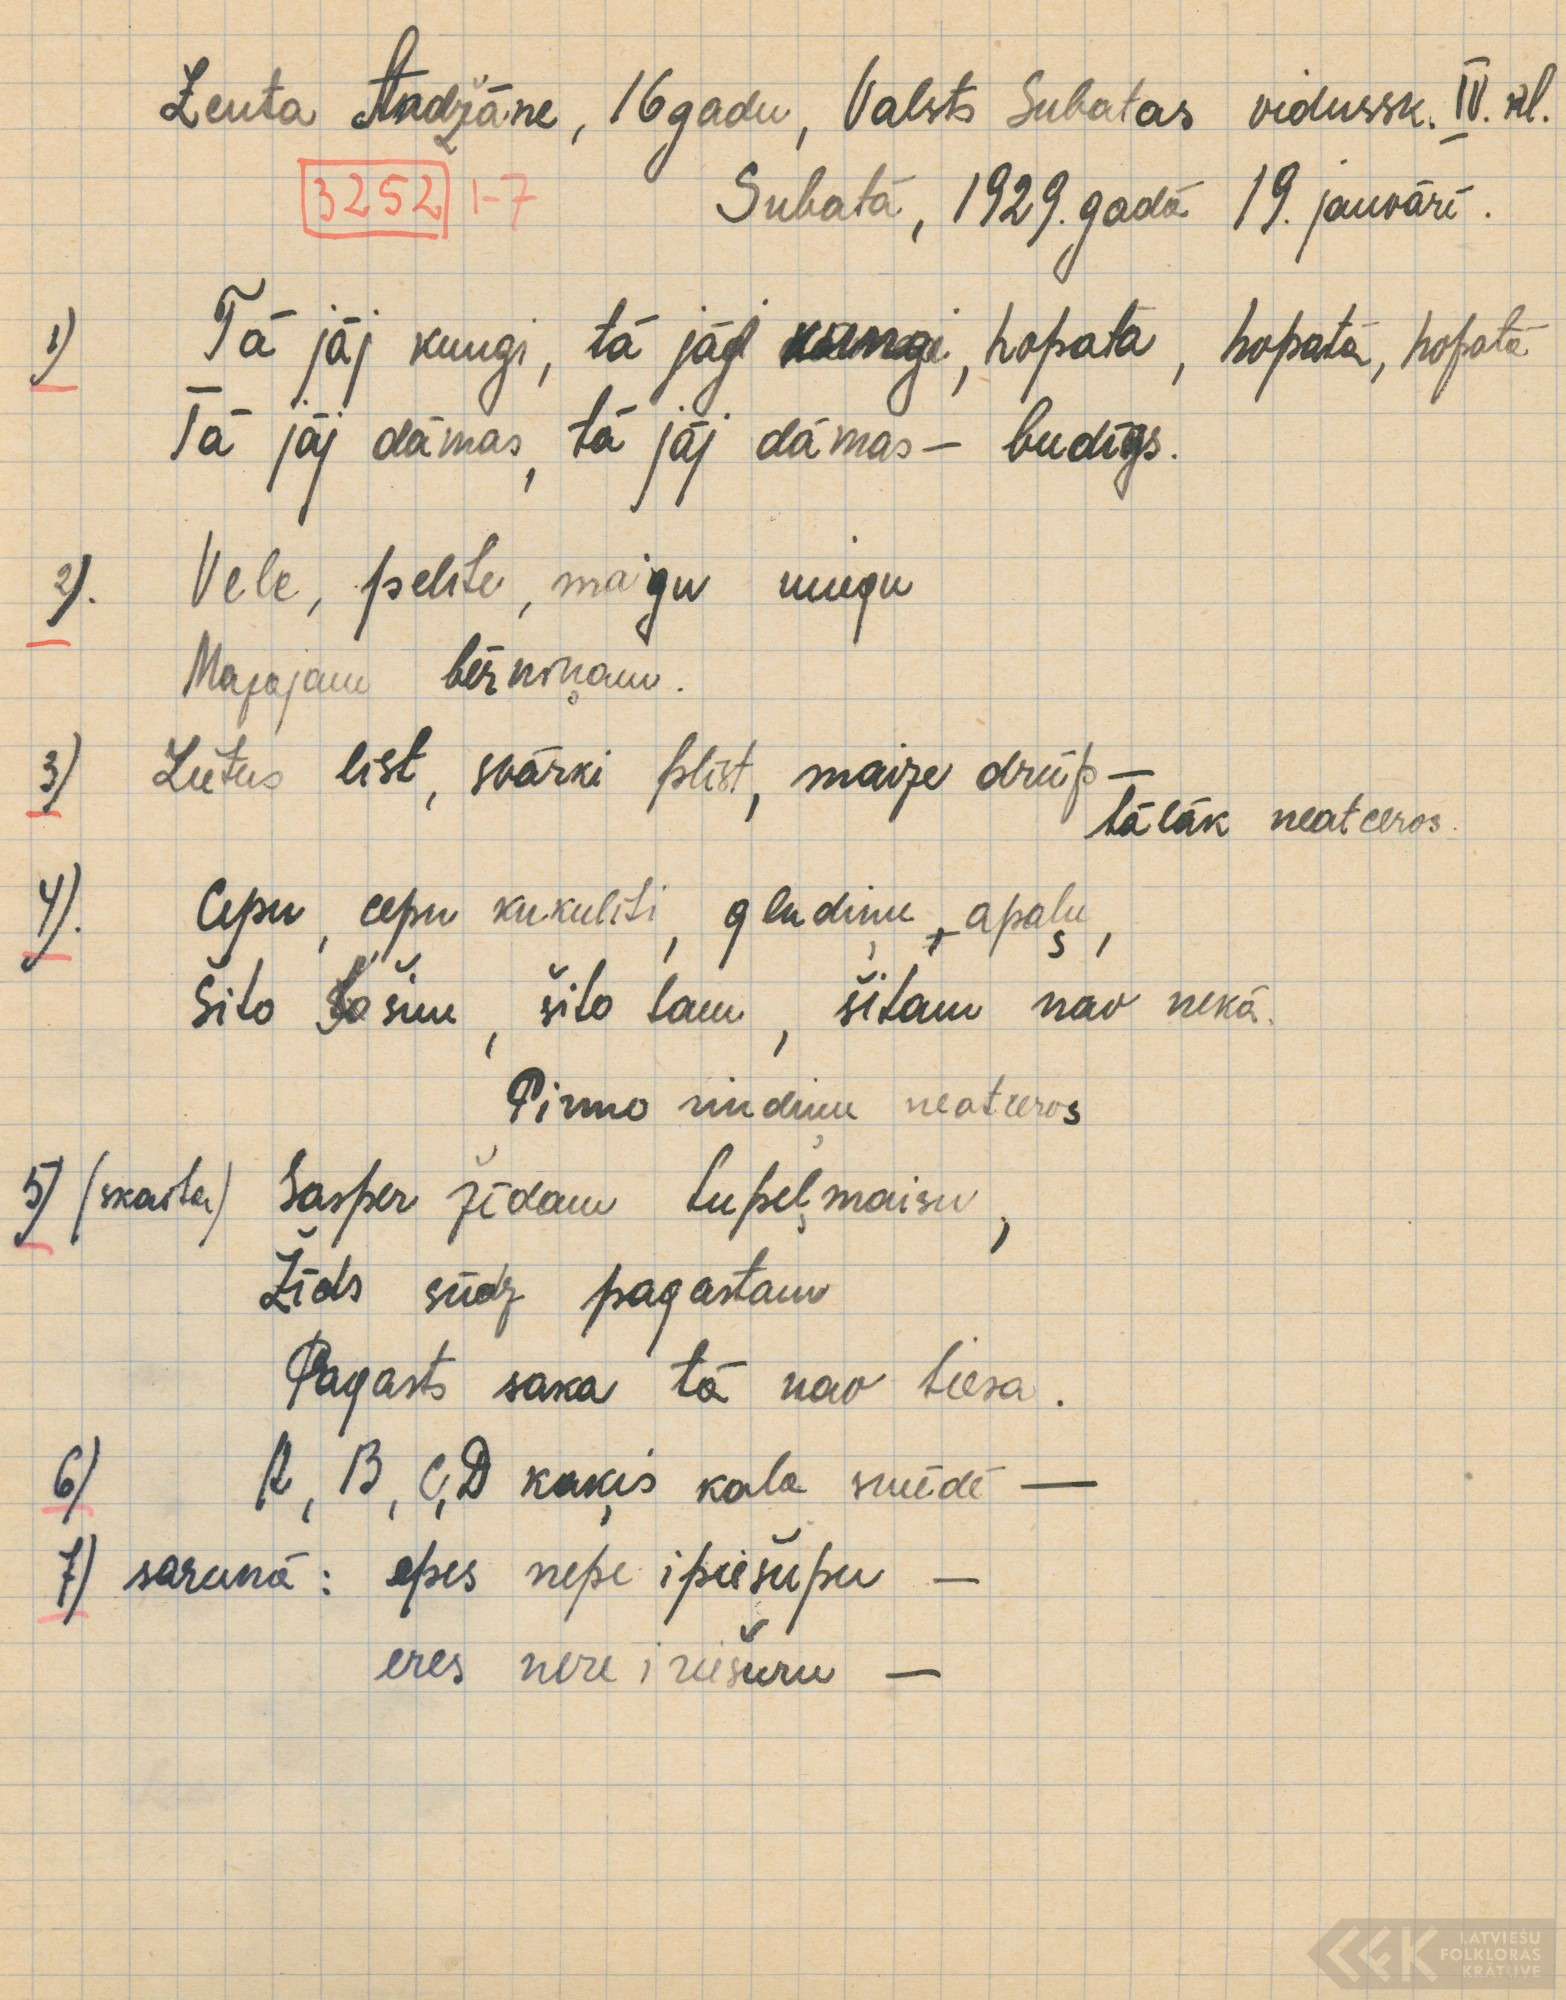 Zenta Andžāne, 16 gadu, Valsts Subatas vidussk. IV. kl.
3252 1-7
Subatā, 1929. gadā 19. janvārī.
1) Tā jāj kungi, tā jāj kungi, hopatā, hopatā, hopatā
Tā jāj dāmas, tā jāj dāmas - budīgs.
2). Vele, pelīte, maigu miegu
Mazajam bērniņam.
3) Lietus līst, svārki plīst, maize drūp -
tālāk neatceros.
4). Cepu, cepu kukulīti, gludiņu, apaļu,
Šito šim, šito tam, šitam nav nekā.
Pirmo rindiņu neatceros
5) (skaita) Sasper žīdam tupeļmaisu,
Žīds sūdz pagastam
Pagasts saka tā nav tiesa.
6) A, B, C, D kaķis kala smēdē —
7) sarunā: epes nepe ipiešūpu —
eres nere iriešuru —
LATVIEŠU
FOLKLORAS
KRĀTUVE